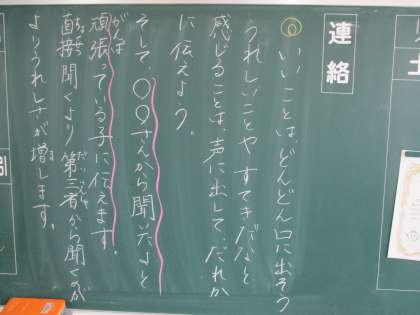 連絡
◎いいことは、どんどん口に出そう
うれしいことやすてきだなと
感じることは、声に出して だれか
に伝えよう。
そして ○○さんから聞いたよと
頑張っている子に伝えます。
がんば
直接聞くより 第三者から聞くのが
ちょくせつ
だいさんしゃ
よりうれしさが増します。
ま
土